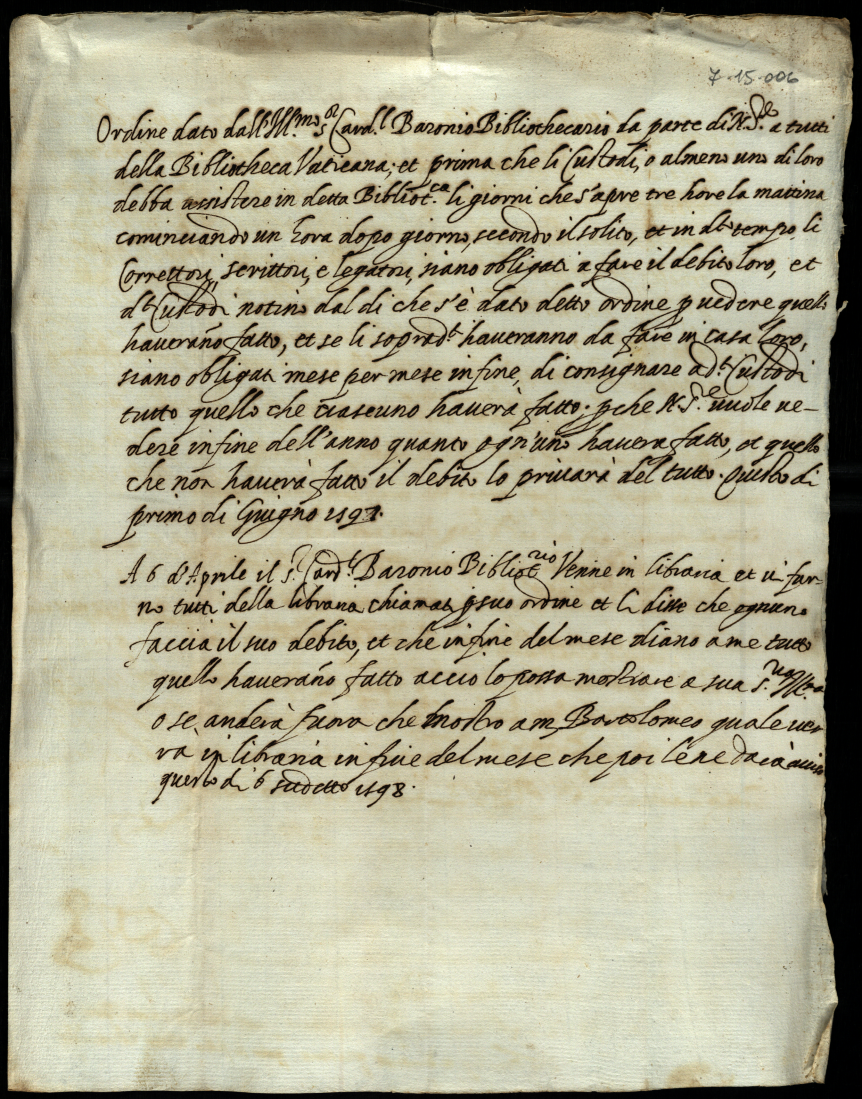 7-15-006
Ordine dato dall'Ill.mo s.or Card.l Baronio Bibliothecario da parte di N. S.re a tutti
della Bibliotheca Vaticana; et prima che li Custodi, o almeno uno di loro
debba assistere in detta Bibliot.ca li giorni che s'apre tre hore la mattina
cominciando un hora dopo giorno, secondo il solito, et in d.to tempo li
Correttori, scrittori, e legatori, siano obligati a fare il debito loro, et
d.ti Custodi notino dal di che s'è dato detto ordine p vedere quello
haverano fatto, et se li soprad.ti haveranno da fare in casa loro,
siano obligati mese per mese in fine, di consignare a d.ti Custodi
tutto quello che ciascuno haverà fatto; pche N. S.re vuole ve-
dere in fine dell'anno quanto ogn'uno haverà fatto, et quello
che non haverà fatto il debito lo privarà del tutto. Questo di
primo di Giugno 1597.
A 6 d'Aprile il s.r Card.l Baronio Bibliot.rio Venne in libraria et vi fur-
no tutti della libraria chiamati p suo ordine et li disse che ognuno
faccia il suo debito, et che in fine del mese diano a me tutto
quello haverano fatto acciò lo possa mostrare a sua s.ria Ill.ma
o se anderà fuora che mostro a m. Bartolomeo quale ver
rà in libraria in fine del mese che poi lene darà aviso
questo di 6 sudetto 1598.